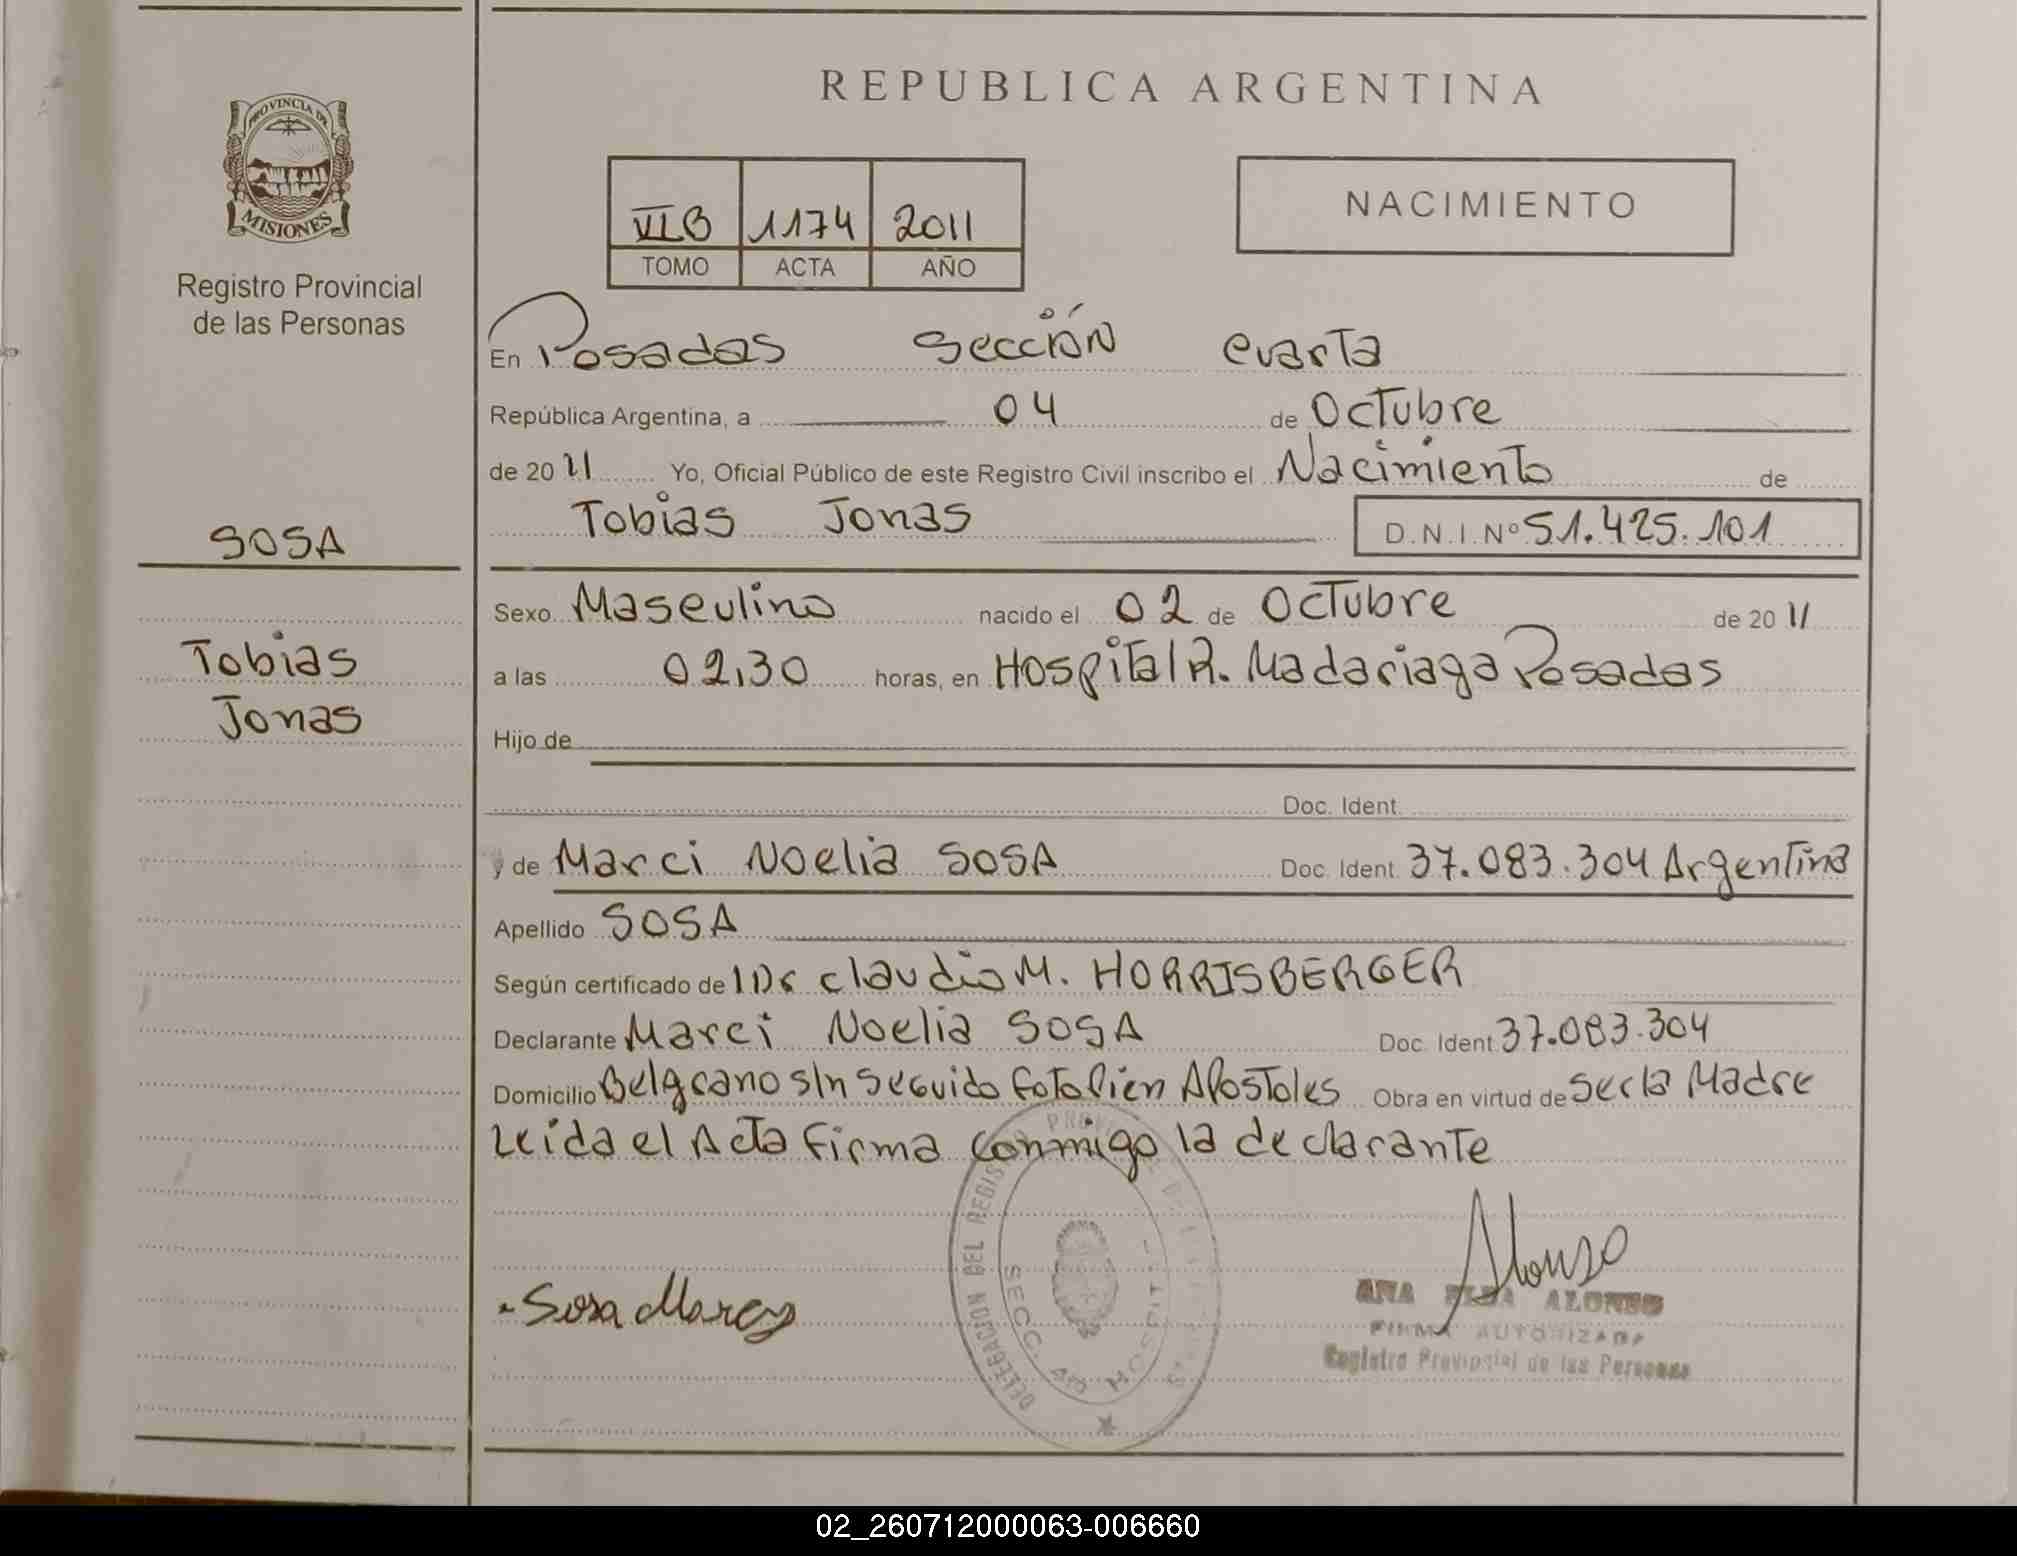 REPUBLICA ARGENTINA
PROVINCIA DE
MISIONES
Registro Provincial
de las Personas
VI B 1174 2011
TOMO ACTA AÑO
NACIMIENTO
En Posadas Sección Cuarta
República Argentina, a 04 de Octubre
de 20 11 Yo, Oficial Público de este Registro Civil inscribo el Nacimiento de
Tobias Jonas D.N.I. Nº 51.425.101
SOSA
Tobias
Jonas
Sexo Masculino nacido el 02 de Octubre de 20 11
a las 02,30 horas, en Hospital R. Madariaga Posadas
Hijo de
Doc. Ident.
y de Marci Noelia SOSA Doc. Ident. 37.083.304 Argentina
Apellido SOSA
Según certificado de Claudio M. HORRISBERGER
Declarante Marci Noelia SOSA Doc. Ident. 37.083.304
Domicilio Belgrano s/n Apostoles Obra en virtud de Ser la Madre
Leida el Acta Firma Conmigo la declarante
Sosa Marcy
Alonso
DELEGACION DEL REGIS
SECC. 4ta HOSPIT
ANA ALONSO
FIRMA AUTORIZADA
Registro Provincial de las Personas
02_260712000063-006660